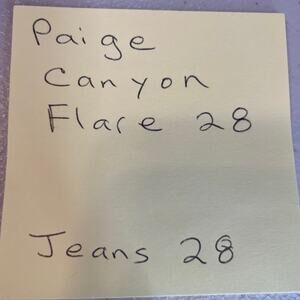 Paige
Canyon
Flare 28
Jeans 28